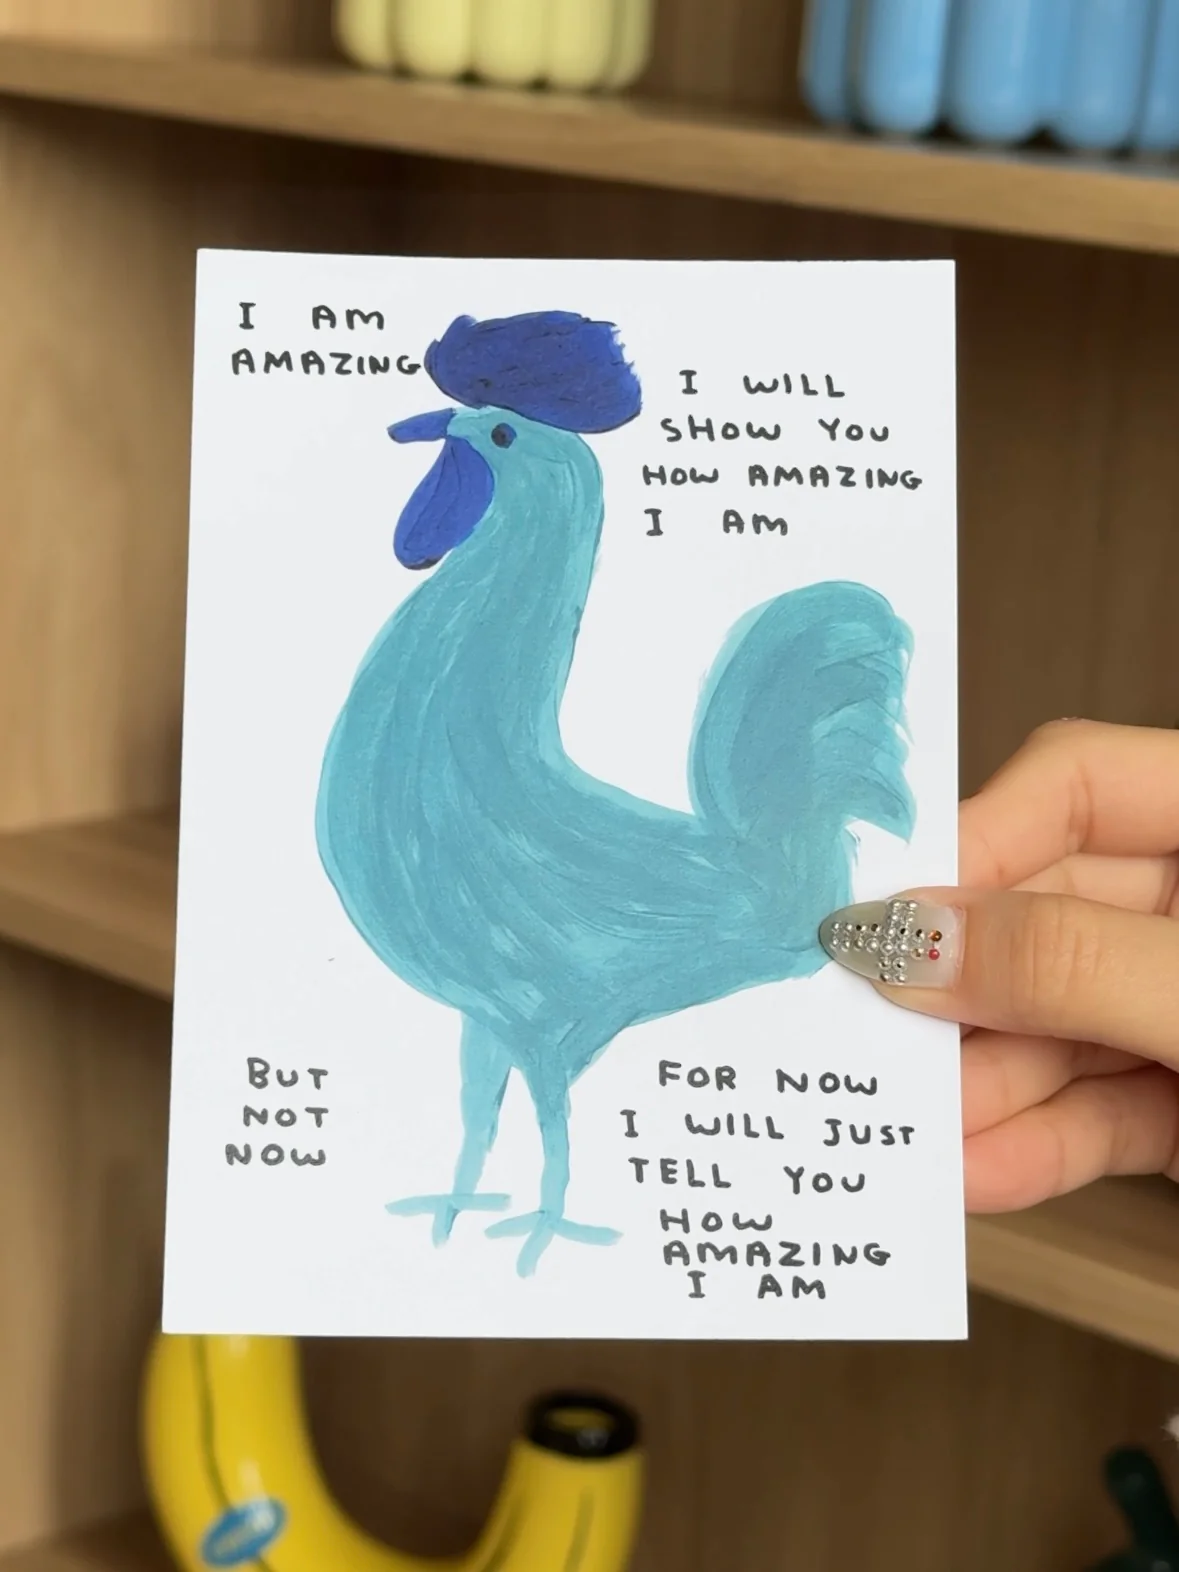 I AM
AMAZING
I WILL
SHOW YOU
HOW AMAZING
I AM
BUT
NOT
NOW
FOR NOW
I WILL JUST
TELL YOU
HOW
AMAZING
I AM